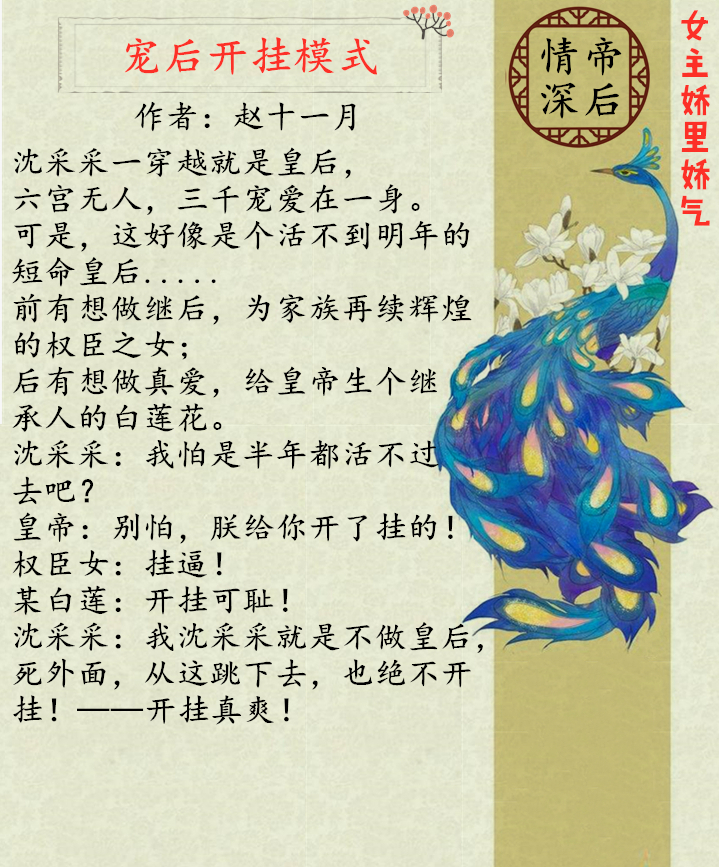 宠后开挂模式
作者：赵十一月
沈采采一穿越就是皇后，
六宫无人，三千宠爱在一身。
可是，这好像是个活不到明年的
短命皇后.....
前有想做继后，为家族再续辉煌
的权臣之女；
后有想做真爱，给皇帝生个继
承人的白莲花。
沈采采：我怕是半年都活不过
去吧？
皇帝：别怕，朕给你开了挂的！
权臣女：挂逼！
某白莲：开挂可耻！
沈采采：我沈采采就是不做皇后，
死外面，从这跳下去，也绝不开
挂！——开挂真爽！
帝后
情深
女主娇里娇气